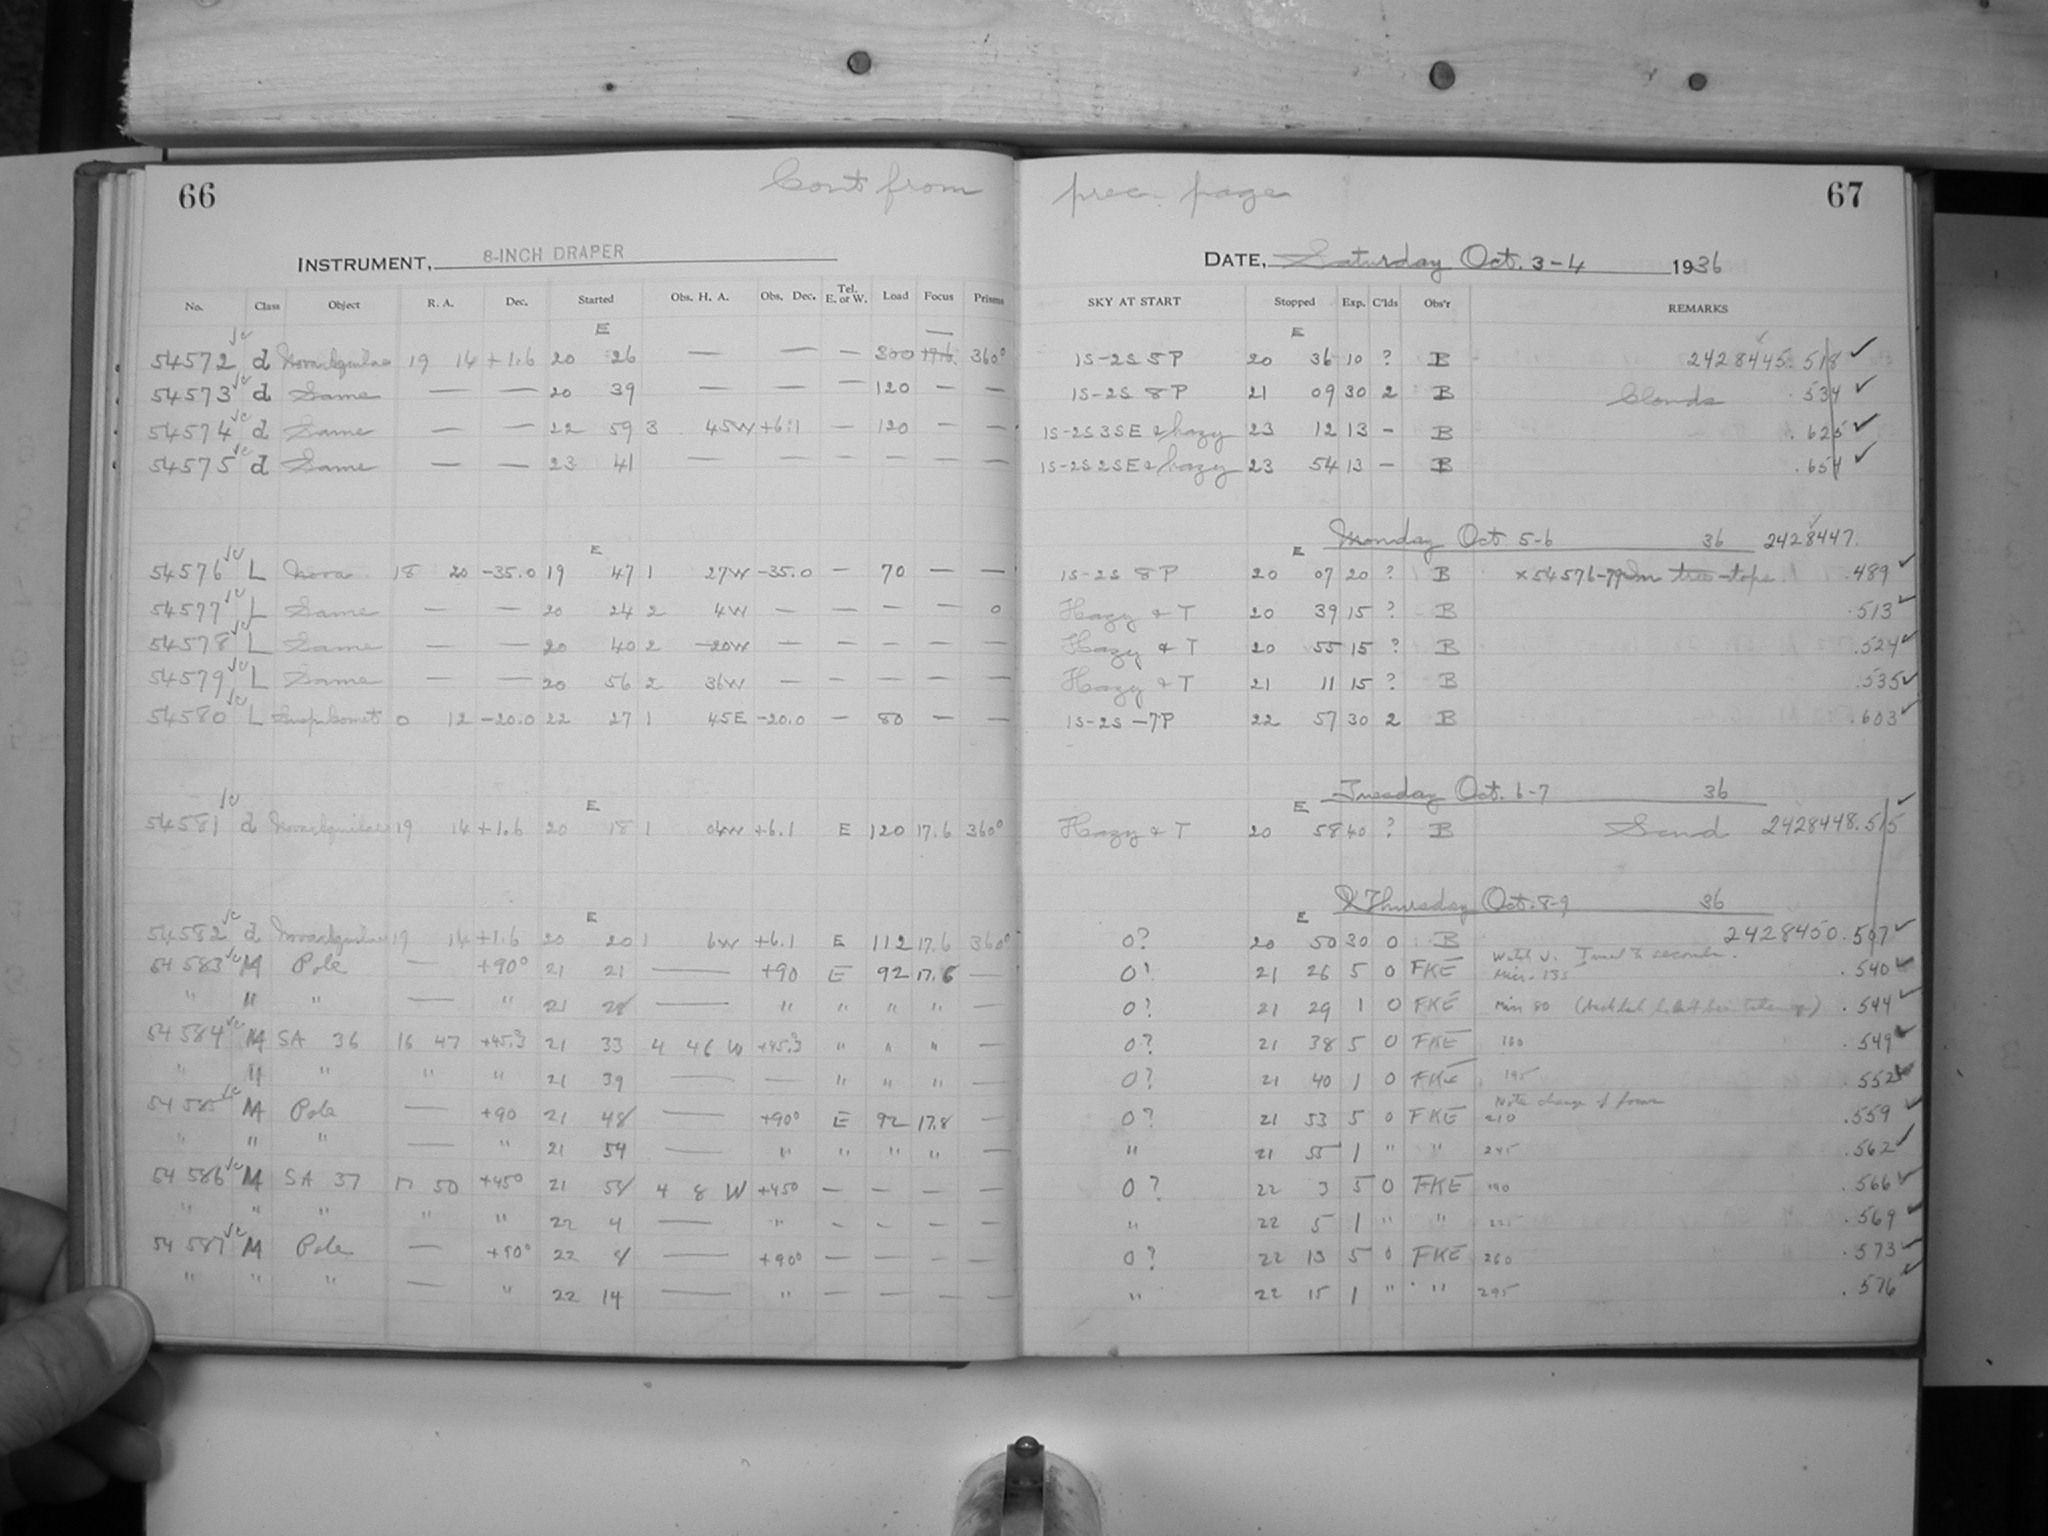 66 Cont from prec. page 67
INSTRUMENT, 8-INCH DRAPER DATE, Saturday Oct. 3-4 1936
No. Class Object R. A. Dec. Started Obs. H. A. Obs. Dec. Tel. E. or W. Load Focus Prisms SKY AT START Stopped Exp. C'lds Obs'r REMARKS
E E
54572 d Nova Aquilae 19 14 +1.6 20 26 — — — 300 17.6 360° 1S-2S 5P 20 36 10 ? B 2428445.518 ✓
54573 d Same — — 20 39 — — — 120 — — 1S-2S 8P 21 09 30 2 B Clouds .534 ✓
54574 d Same — — 22 59 3 45W +6.1 — 120 — — 1S-2S 3SE & hazy 23 12 13 — B .625 ✓
54575 d Same — — 23 41 — — — — — — 1S-2S 2SE & hazy 23 54 13 — B .654 ✓
Monday Oct 5-6 36 2428447.
E E
54576 L Nova 18 20 -35.0 19 47 1 27W -35.0 — 70 — — 1S-2S 8P 20 07 20 ? B x54576-79 In tree-tops. .489 ✓
54577 L Same — — 20 24 2 4W — — — — 0 Hazy & T 20 39 15 ? B .513 ✓
54578 L Same — — 20 40 2 20W — — — — — Hazy & T 20 55 15 ? B .524 ✓
54579 L Same — — 20 56 2 36W — — — — — Hazy & T 21 11 15 ? B .535 ✓
54580 L 0 12 -20.0 22 27 1 45E -20.0 — 80 — — 1S-2S-7P 22 57 30 2 B .603 ✓
Tuesday Oct. 6-7 36
E E
54581 d Nova Aquilae 19 14 +1.6 20 18 1 04W +6.1 E 120 17.6 360° Hazy & T 20 58 40 ? B 2428448.515 ✓
Thursday Oct. 8-9 36
E E
54582 d Nova Aquilae 19 14 +1.6 20 20 1 6W +6.1 E 112 17.6 360° 0? 20 50 30 0 B 2428450.507 ✓
54583 M Pole — +90° 21 21 — +90 E 92 17.6 — 0? 21 26 5 0 FKE .540 ✓
" M " — " 21 28 — " " " " — 0? 21 29 1 0 FKE Min 80 .544 ✓
54584 M SA 36 16 47 +45.3 21 33 4 46 W +45.3 " " " — 0? 21 38 5 0 FKE 160 .549 ✓
" M " " " 21 39 — — " " " — 0? 21 40 1 0 FKE 195 .552 ✓
Note change of focus
54585 M Pole — +90 21 48 — +90° E 92 17.8 — 0? 21 53 5 0 FKE 210 .559 ✓
" " " — " 21 54 — " " " " — " 21 55 1 " " 245 .562 ✓
54586 M SA 37 17 50 +45° 21 58 4 8 W +45° — — — — 0? 22 3 5 0 FKE 190 .566 ✓
" " " " " 22 4 — " — — — — " 22 5 1 " " 225 .569 ✓
54587 M Pole — +90° 22 8 — +90° — — — — 0? 22 13 5 0 FKE 260 .573 ✓
" " " — " 22 14 — " — — — — " 22 15 1 " " 295 .576 ✓